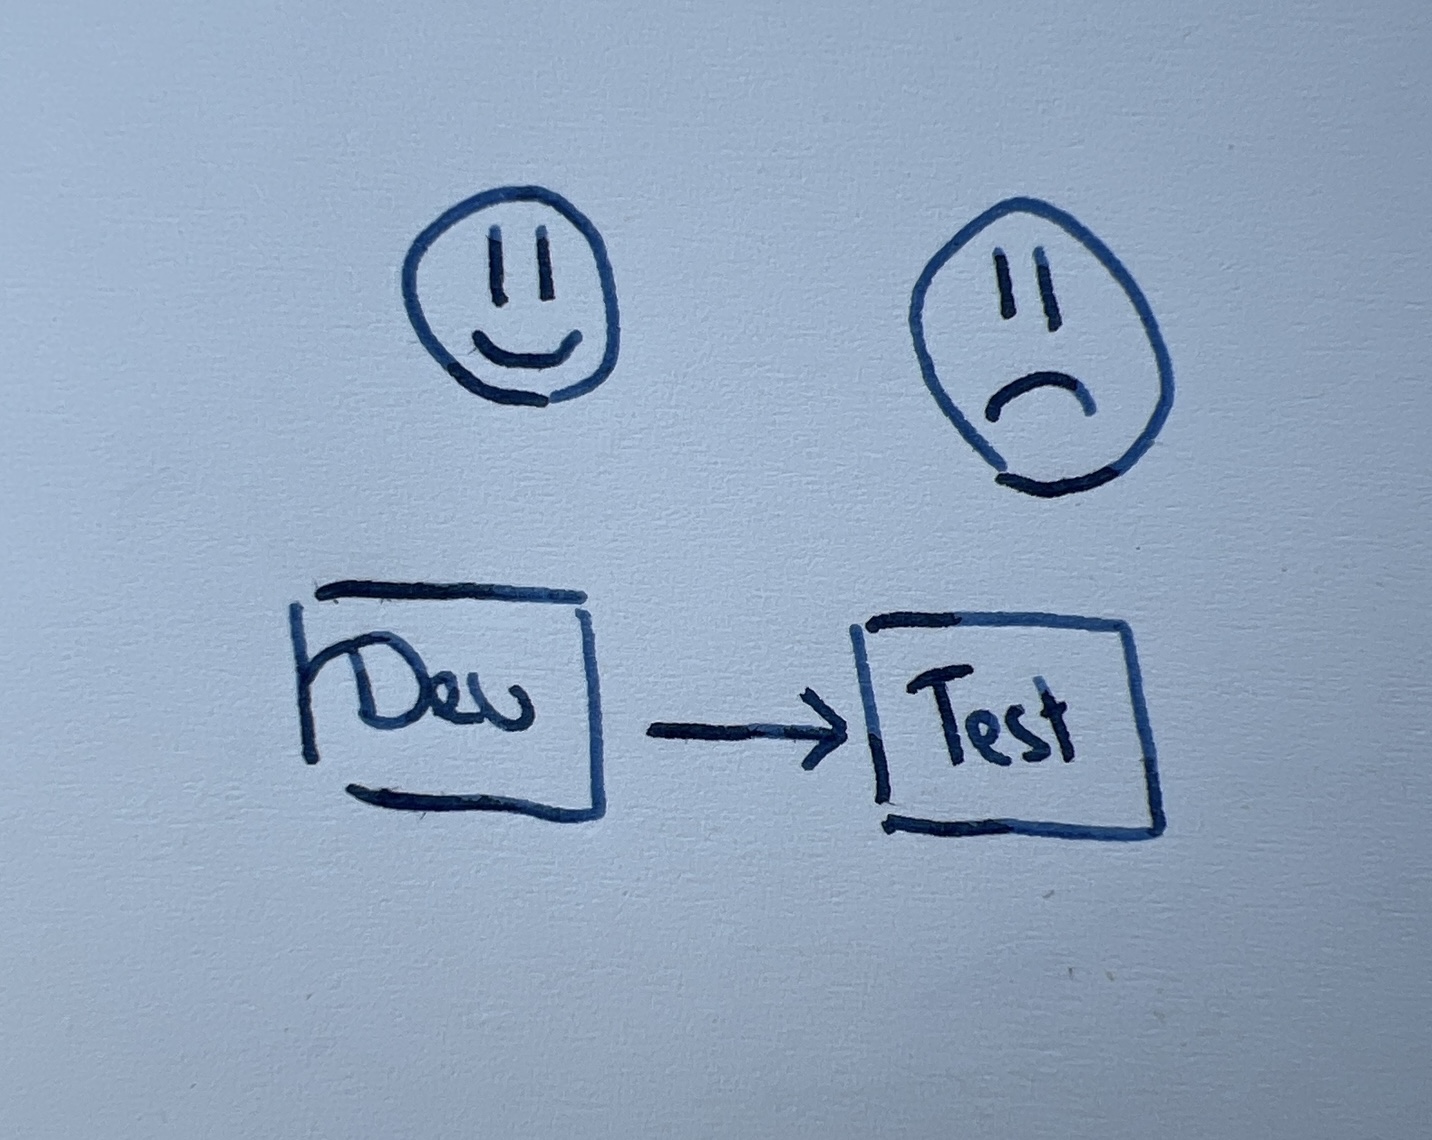 Dev
Test